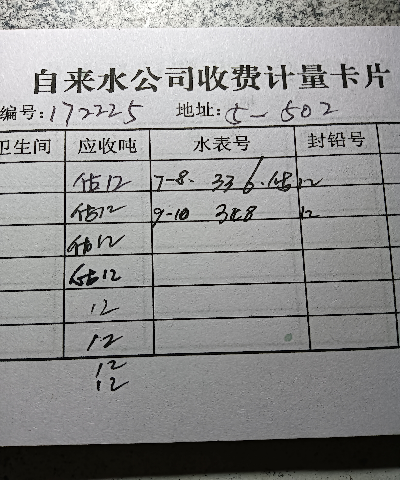 自来水公司收费计量卡片
编号:172225 地址:5-502
卫生间 应收吨 水表号 封铅号
估12 7-8. 336.估12
估12 9-10 348 12
估12
估12
12
12
12
12